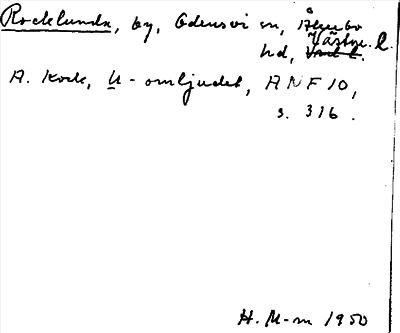 Rocklunda, by, Odensvi sn, Åkerbo
hd, Västm. l.
A. Kock, U-omljudet, ANF 10,
s. 316.
H. M-m 1950